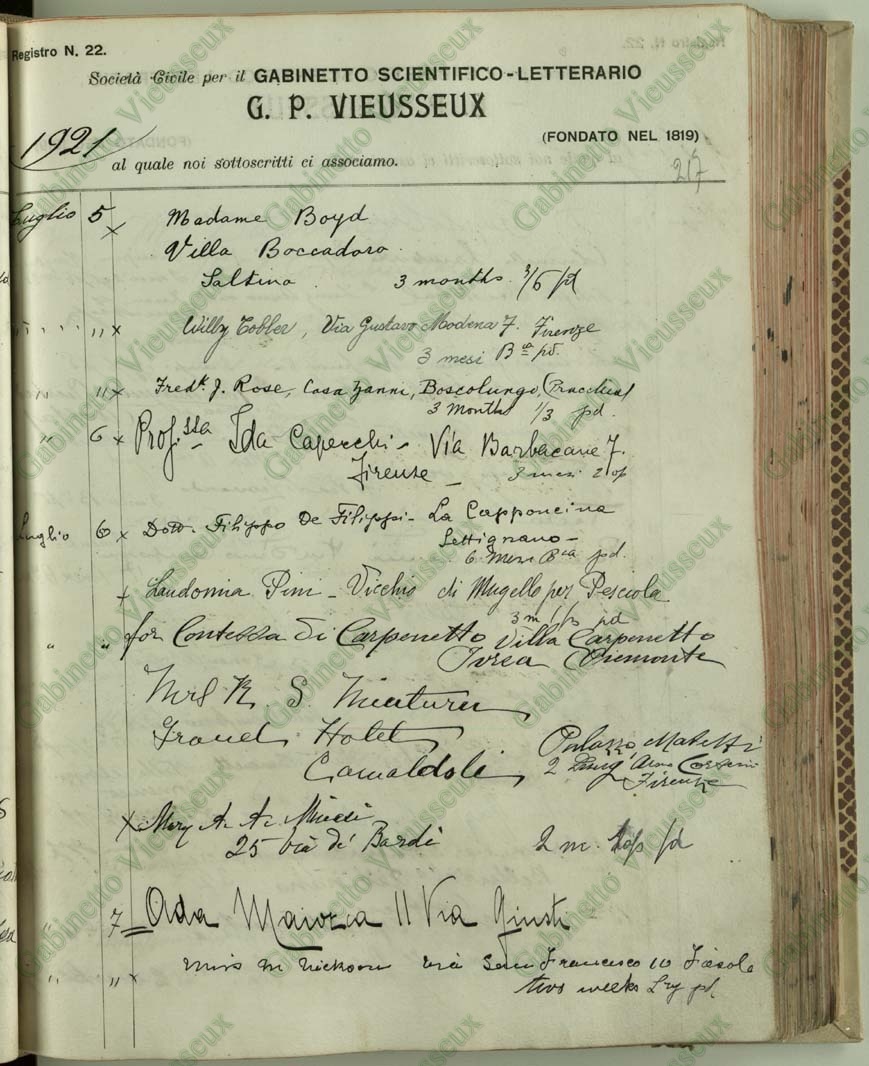 Registro N. 22.
Società Civile per il GABINETTO SCIENTIFICO-LETTERARIO
G. P. VIEUSSEUX
(FONDATO NEL 1819)
1921
al quale noi sottoscritti ci associamo.
217
Luglio 5 x Madame Boyd
Villa Boccadoro
Saltino . 3 months. 3/6 pd
" x Willy Tobler, Via Gustavo Modena 7. Firenze
3 mesi pd.
" " x Fredk. J. Rose, Casa Zanni, Boscolungo, (Pracchia)
3 Months 1/3 pd.
" 6 x Prof.ssa Ida Capecchi - Via Barbacane 7.
Firenze - 3 mesi
Luglio 6 x Dott. Filippo De Filippi - La Capponcina
Settignano -
6 Mesi pd.
x Laudomia Pini - Vicchio di Mugello per Pesciola
3 m pd
" " for Contessa di Carpenetto Villa Carpenetto
Ivrea Piemonte
Mrs K. S.
Grand Hotel
Camaldoli
Palazzo
2 Lung'Arno Corsini
Firenze
x Mary A. A.
25 via de' Bardi 2 m. pd
" 7 = Ada Maiorca 11 Via Giusti
" " x Miss M via San Francesco 10 Fiesole
two weeks pd.
Gabinetto Vieusseux